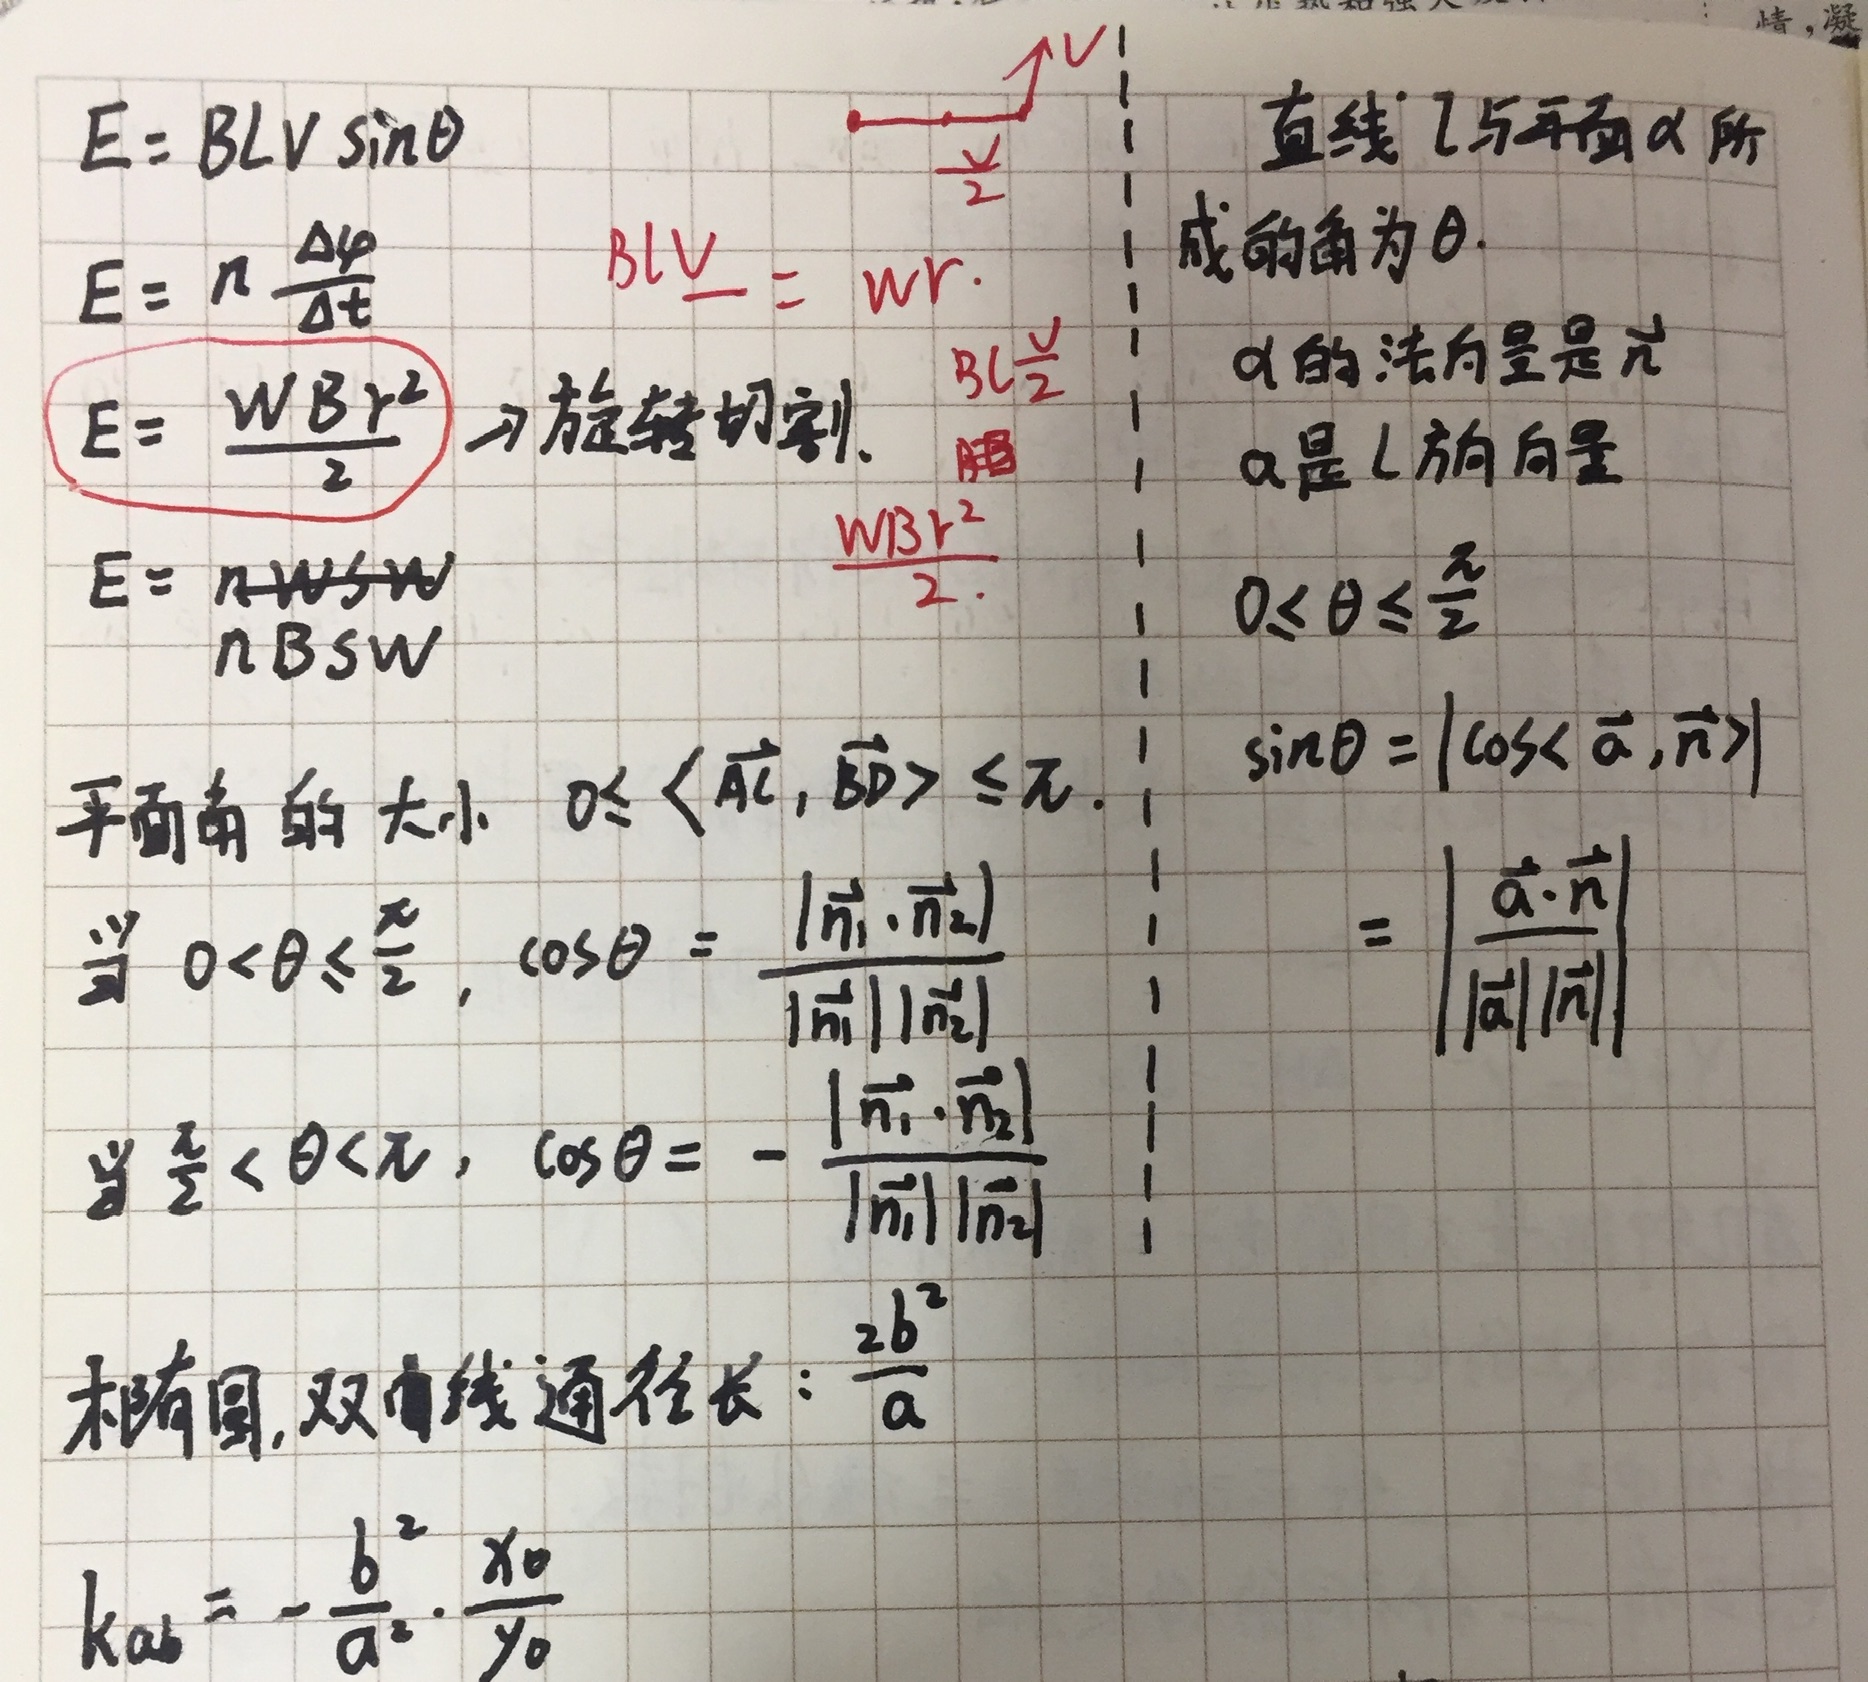 情,凝
E = BLV sinθ
E = n Δφ/Δt
E = WBr²/2 → 旋转切割.
E = nWSW
nBSW
V
V/2
BLV = wr.
BL V/2
WBr²/2.
平面角的大小 0≤<AC→, BD→>≤π.
当 0<θ≤π/2, cosθ = |n₁→·n₂→|/|n₁→||n₂→|
当 π/2<θ<π, cosθ = -|n₁→·n₂→|/|n₁→||n₂→|
椭圆,双曲线通径长: 2b²/a
kab = -b²/a²·x₀/y₀
直线 l与平面α所
成的角为θ.
α的法向量是n→
a是l方向向量
0≤θ≤π/2
sinθ = |cos<a→,n→>|
= |a→·n→/|a→||n→||